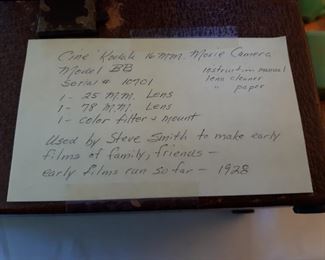 Cine' Kodak 16 m.m. Movie Camera
Model BB
Serial # 10701
instruction manual
lens cleaner
" paper
1 - 25 M.M. Lens
1 - 78 M.M. Lens
1 - color filter & mount
Used by Steve Smith to make early
films of family, friends -
early films run so far - 1928